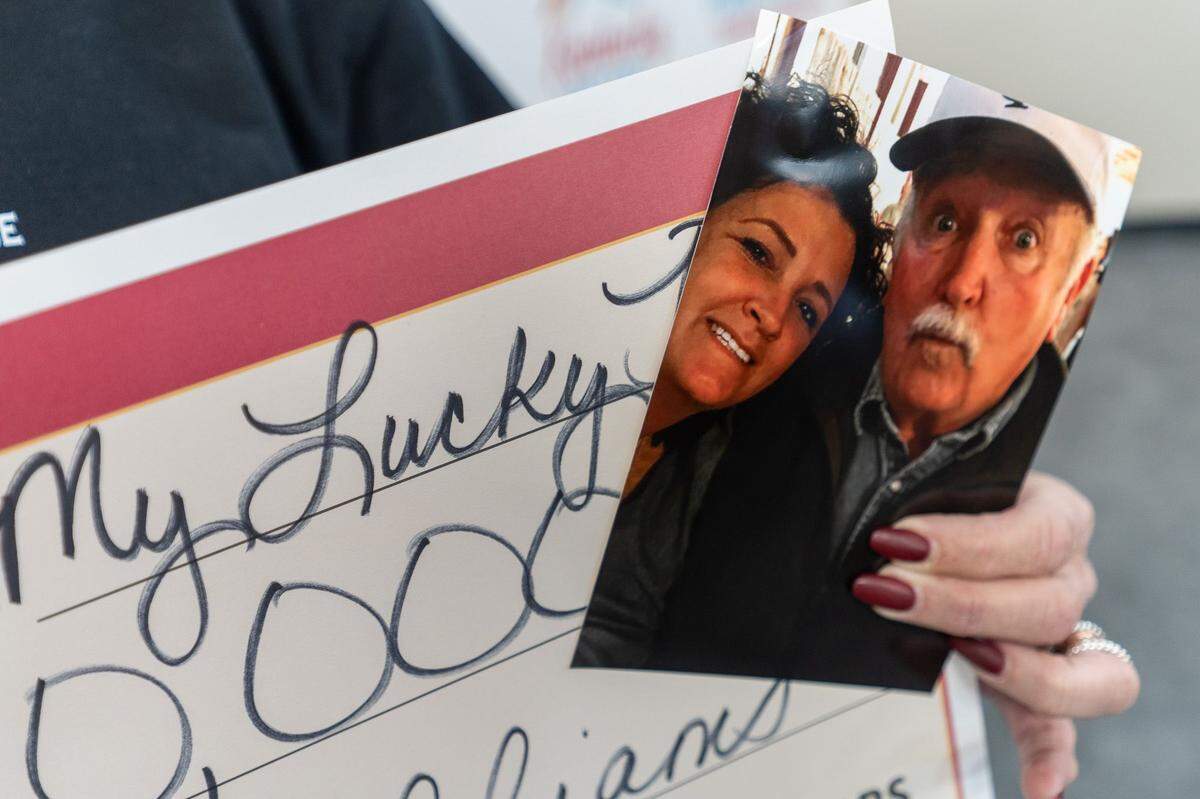 E
My Lucky
0,000
liams